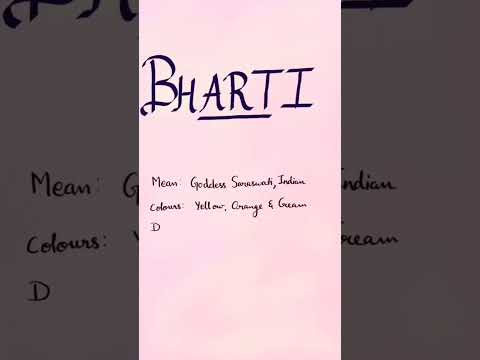 BHARTI
Mean: Goddess Saraswati, Indian
Colours: Yellow, Orange & Cream
D